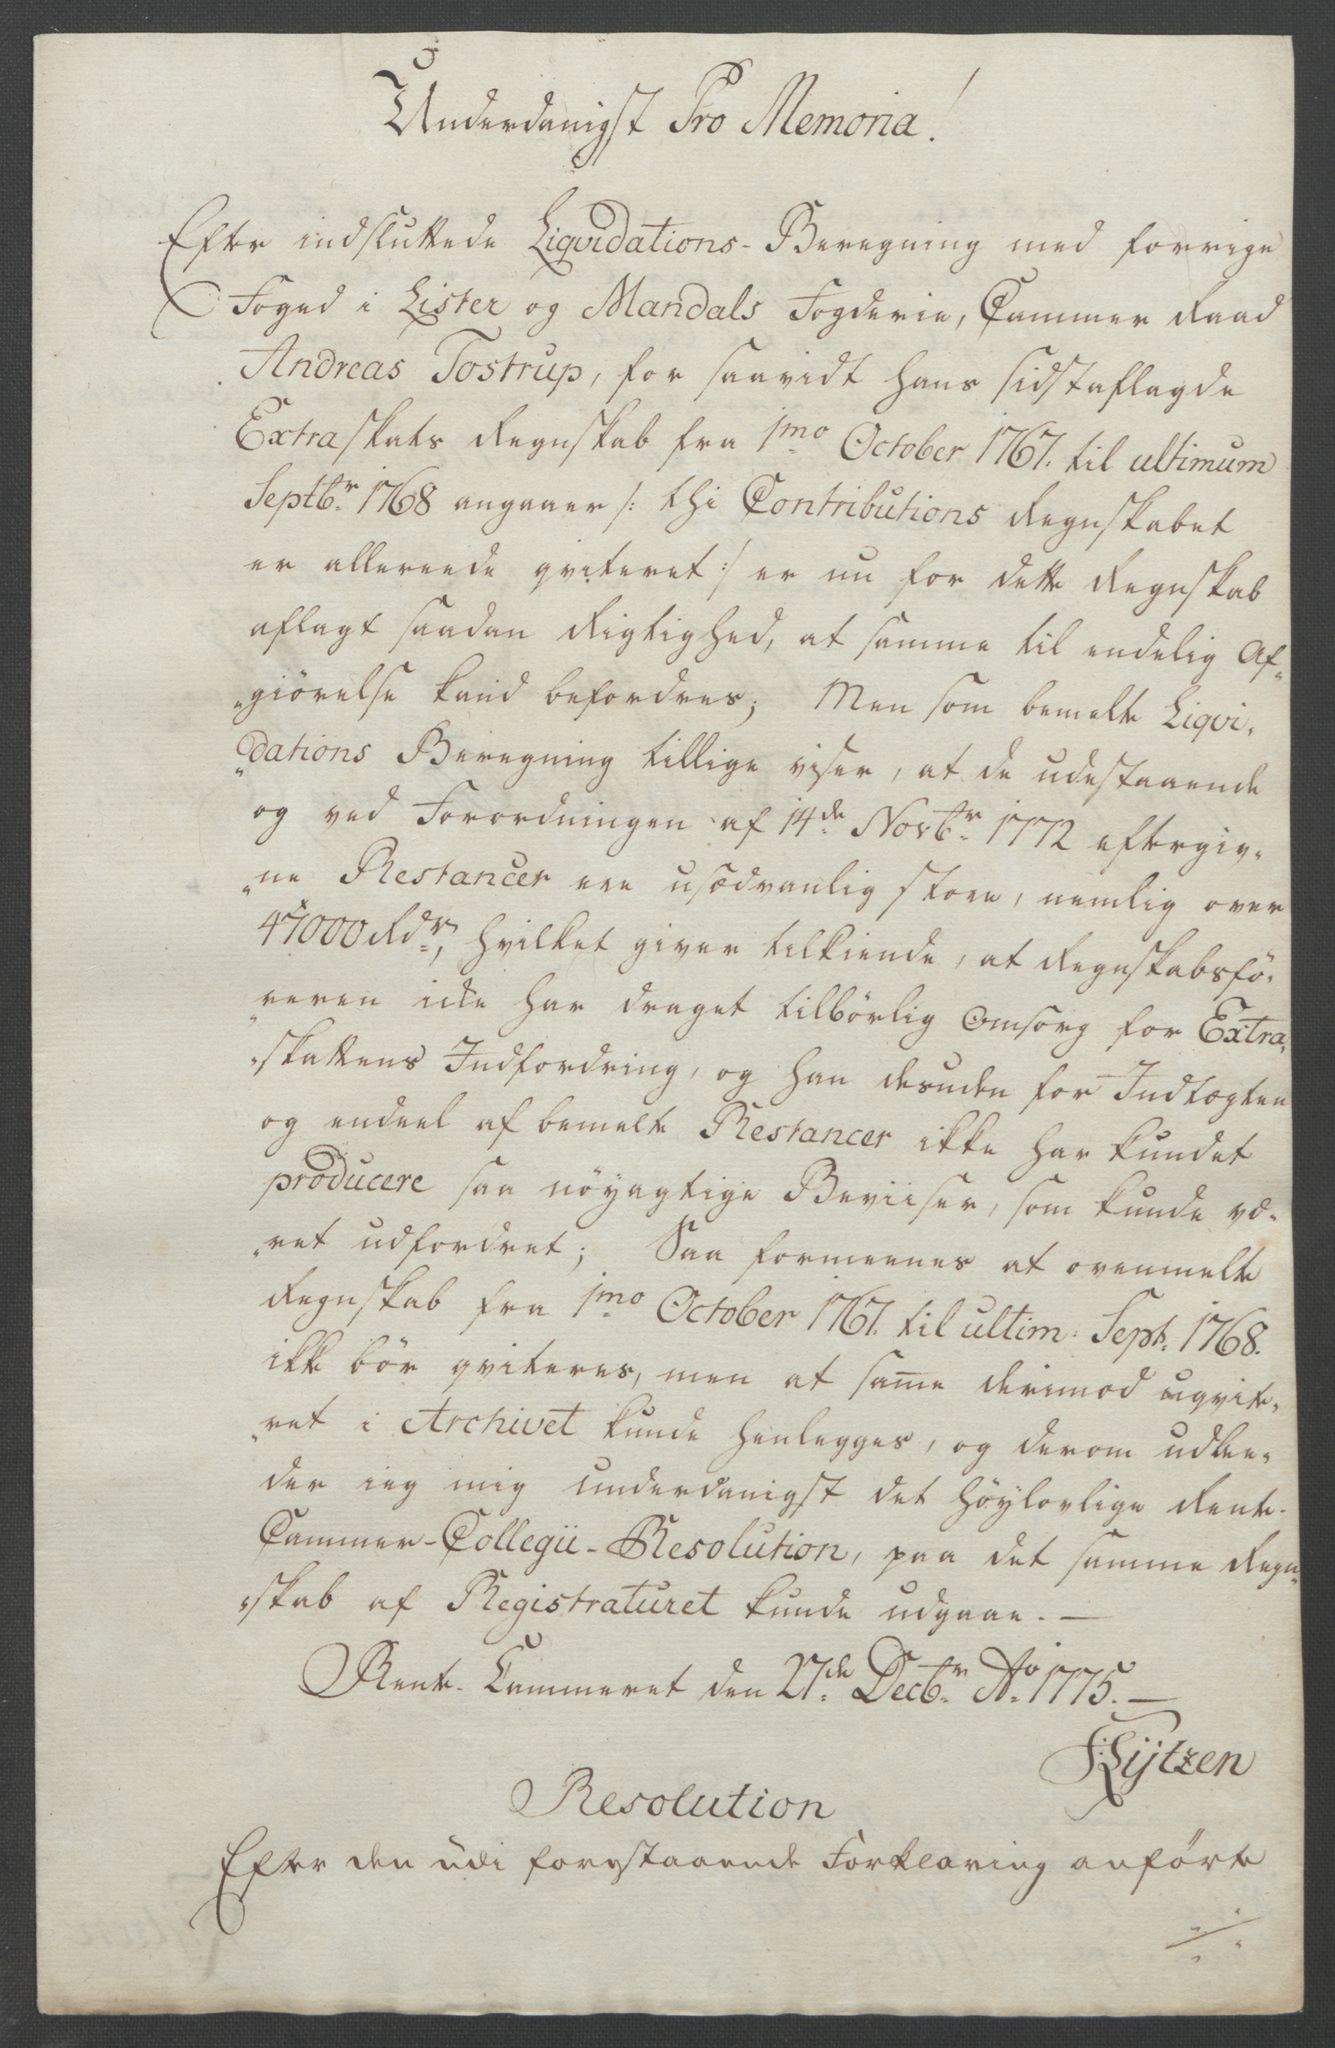 Underdanigst Pro Memoria!
Efter indsluttede Liqvidations-Beregning med forrige
Foged i Lister og Mandals Fogderie, Cammer Raad
Andreas Tostrup, for saavidt hans sidst aflagde
Extraskats Regnskab fra 1mo October 1767. til ultimum
Septbr. 1768 angaaer /: thi Contributions Regnskabet
er allereede qviteret :/ er nu for dette Regnskab
aflagt saadan Rigtighed, at samme til endelig Af-
giörelse kand befordres; Men som bemelte Liqvi-
dations Beregning tillige viser, at de udestaaende
og ved Forordningen af 14de Novbr. 1772 eftergiv-
ne Restancer ere usædvanlig store, nemlig over
47000 Rdr., hvilket giver tilkiende, at Regnskabsfö-
reren icke har draget tilbörlig Omsorg for Extra-
skattens Indfordring, og han desuden for Indtægten
og endeel af bemelte Restancer ikke har kundet
producere saa nöyagtige Beviiser, som kunde væ-
ret udfordret; Saa formeenes at ovenmelte
Regnskab fra 1mo October 1767. til ultim: Sept. 1768.
ikke bör qviteres, men at same derimod uqvite-
ret i Archivet kunde henlegges, og derom udbee-
der ieg mig underdanigst det höylovlige Rente-
Cammer-Collegii-Resolution, paa det samme Regn-
skab af Registraturet kunde udgaae. —
Rente-Cammeret den 27de Decbr. Ao. 1775. —
Lÿtzen
Resolution
Efter den udi forestaaende Forklaring anförte